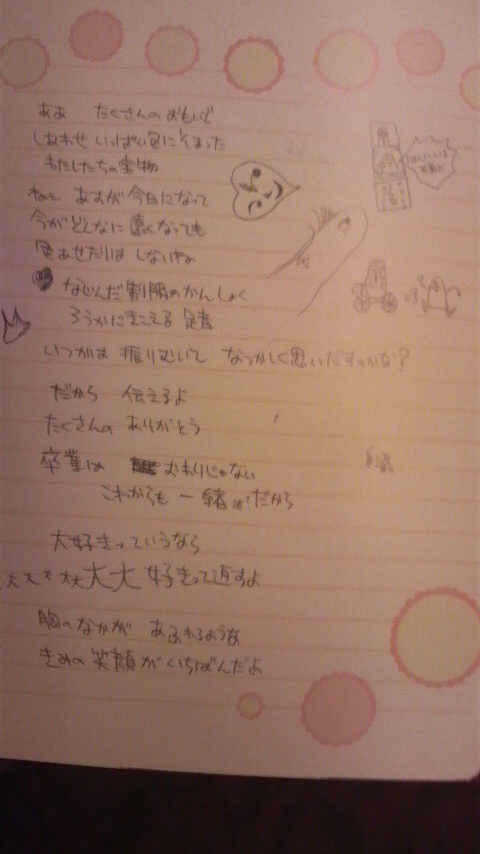 ああ たくさんのおもいで
しあわせ いっぱい色にそまった
わたしたちの宝物
ねぇ あすが今日になって
今がどんなに 遠くなっても
色あせたりは しないね
なじんだ 制服のかんしょく
ろうかにきこえる 足音
いつかは 振りむいて なつかしく思いだすのかな?
だから 伝えるよ
たくさんの ありがとう
卒業は おわりじゃない
これからも 一緒 だから
大好きっていうなら
大大大大大大大 好きって返すよ
胸のなかが あふれるような
きみの 笑顔が いちばんだよ